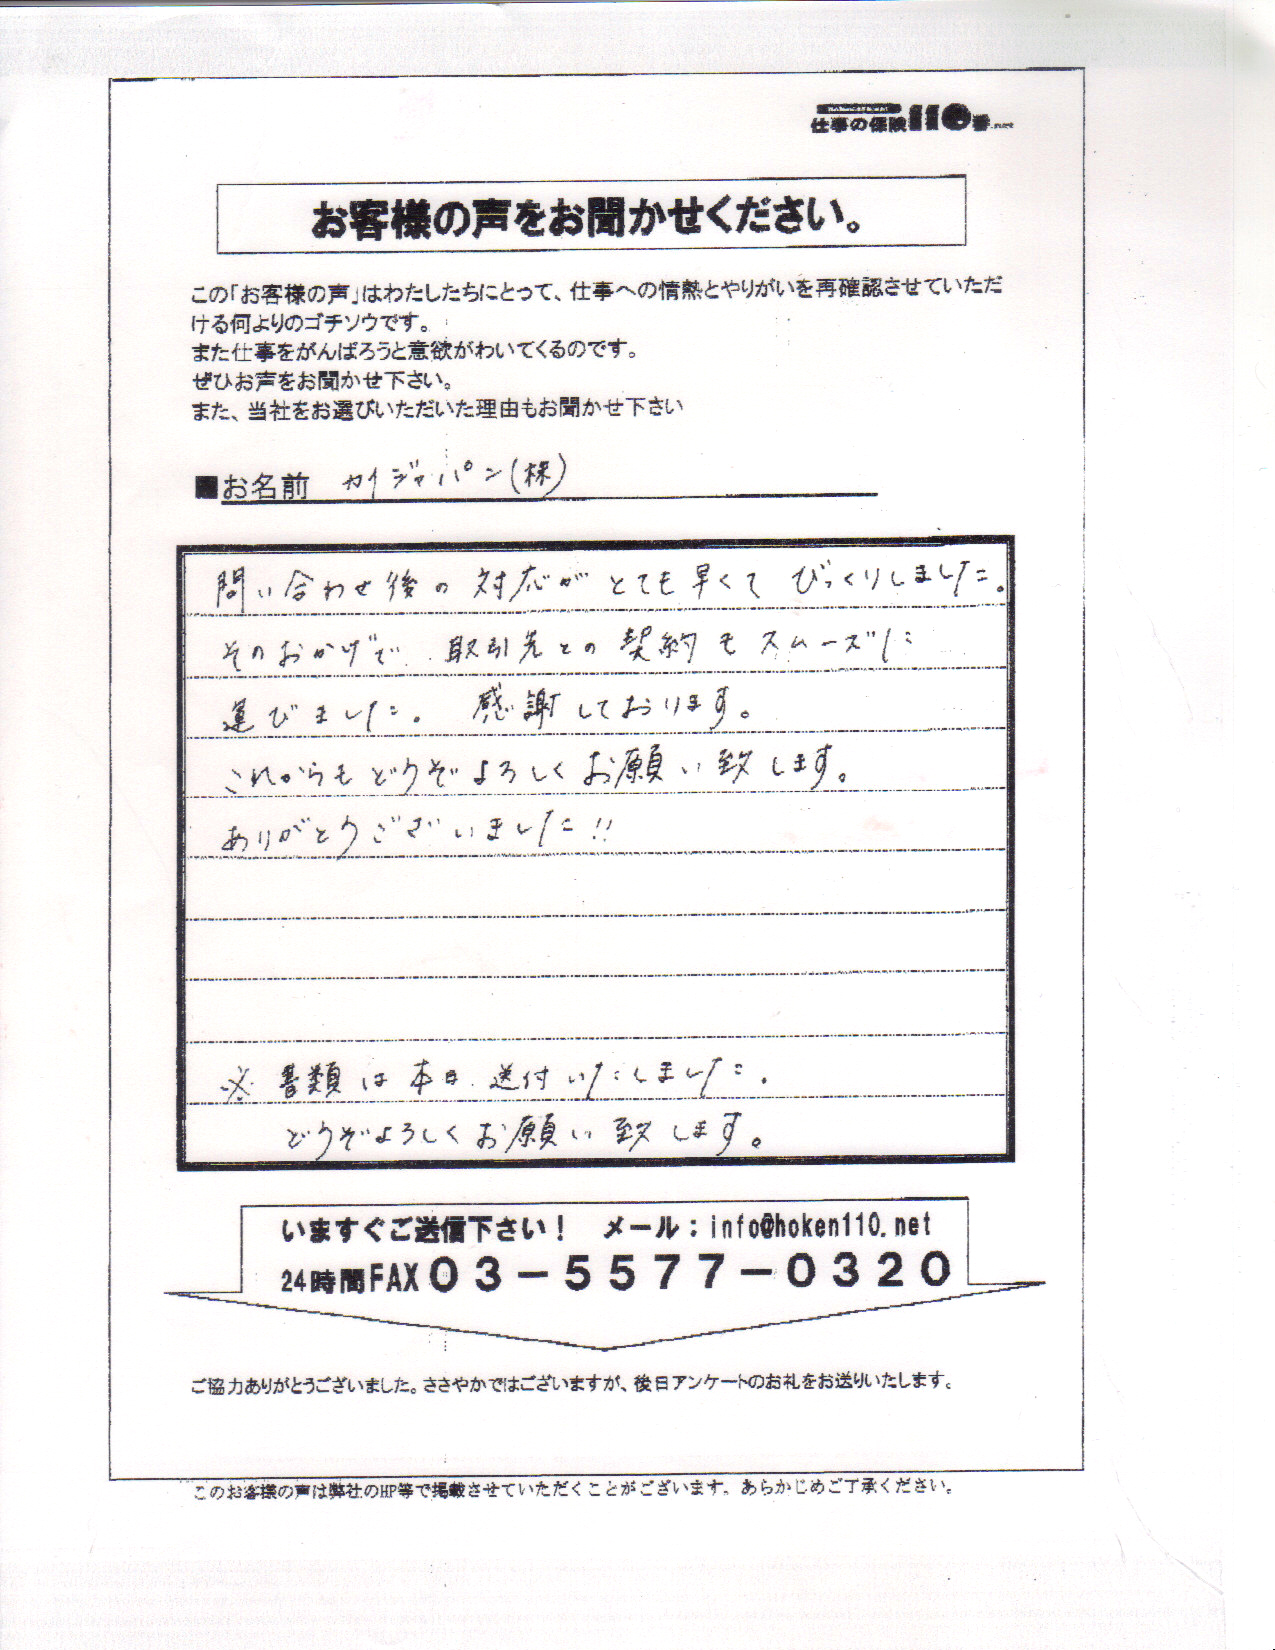 仕事の保険110番.net
お客様の声をお聞かせください。
この「お客様の声」はわたしたちにとって、仕事への情熱とやりがいを再確認させていただ
ける何よりのゴチソウです。
また仕事をがんばろうと意欲がわいてくるのです。
ぜひお声をお聞かせ下さい。
また、当社をお選びいただいた理由もお聞かせ下さい
■お名前 カイジャパン(株)
問い合わせ後の対応がとても早くてびっくりしました。
そのおかげで、取引先との契約もスムーズに
運びました。感謝しております。
これからもどうぞよろしくお願い致します。
ありがとうございました!!
※書類は本日、送付いたしました。
どうぞよろしくお願い致します。
いますぐご送信下さい! メール:info@hoken110.net
24時間FAX03-5577-0320
ご協力ありがとうございました。ささやかではございますが、後日アンケートのお礼をお送りいたします。
このお客様の声は弊社のHP等で掲載させていただくことがございます。あらかじめご了承ください。